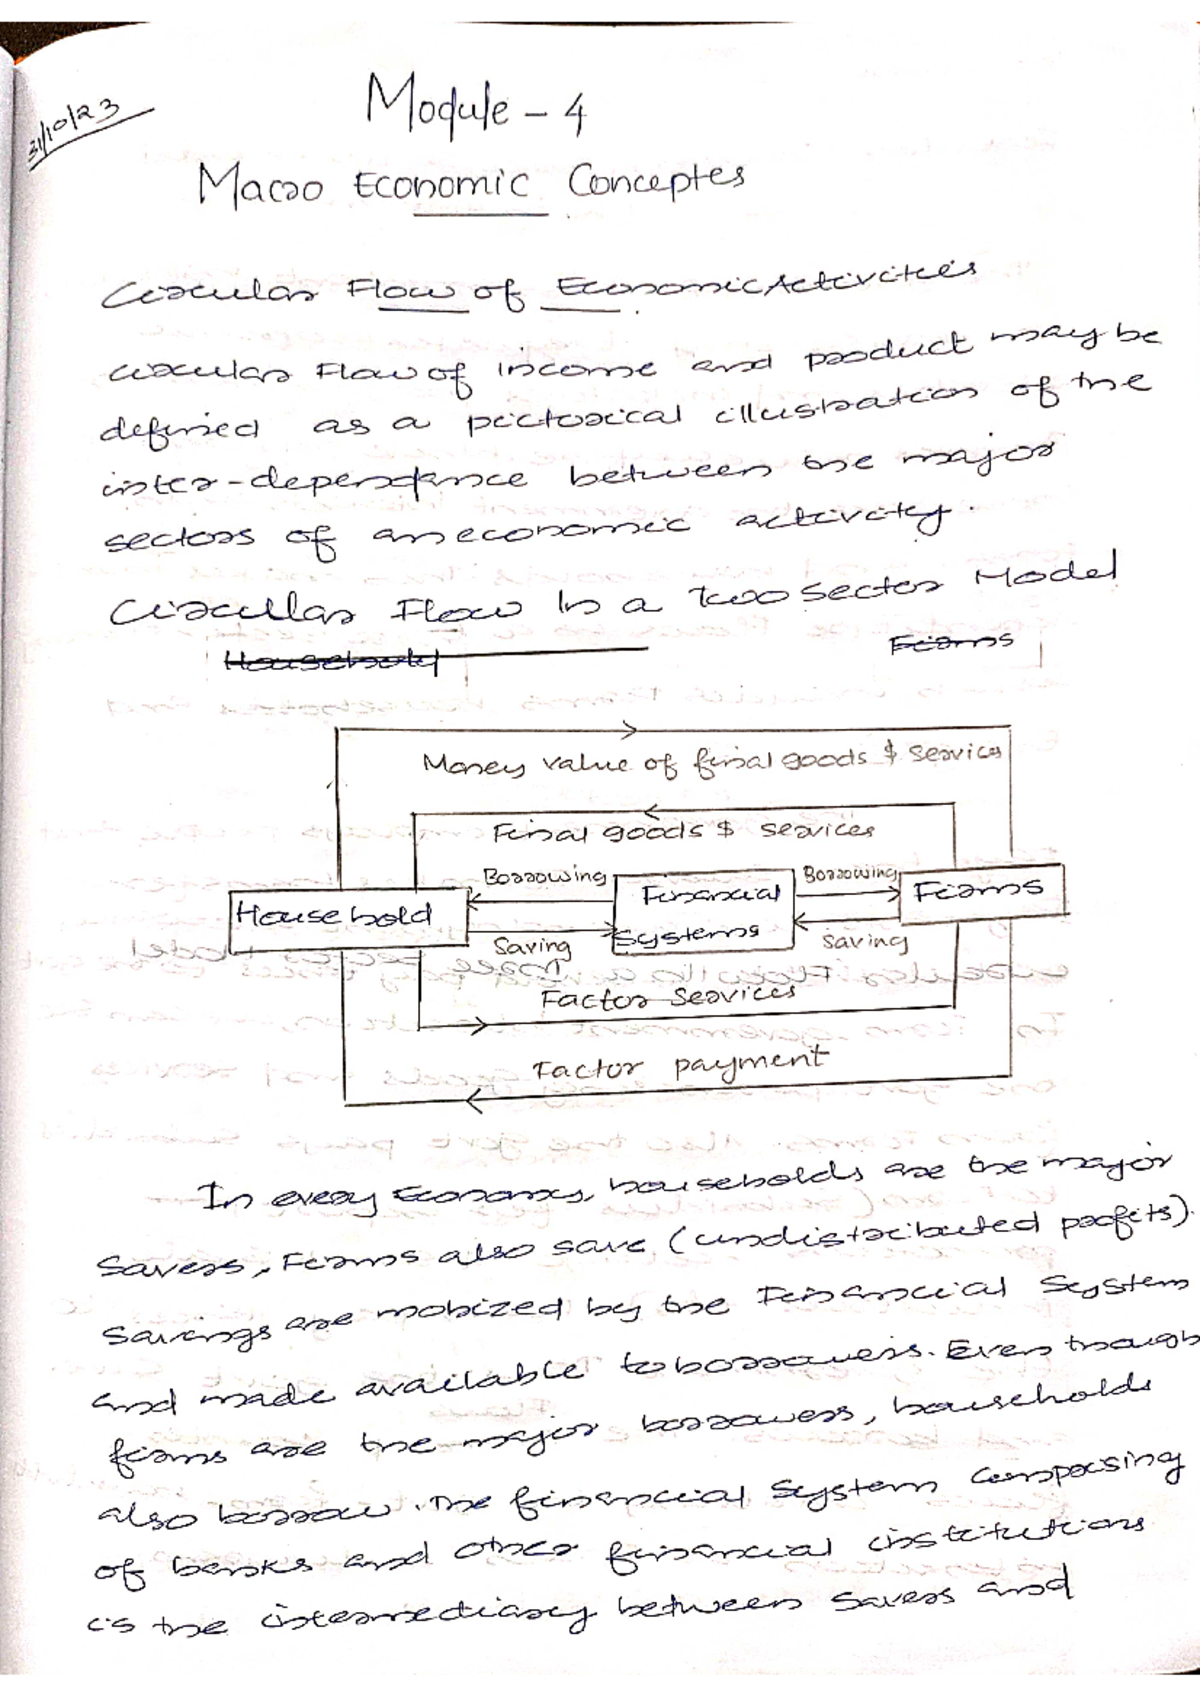 31/10/23
Module - 4
Macro Economic Conceptes
Circular Flow of Economic Activities
Circular Flow of income and product may be
defined as a pictorical illustration of the
inter-dependance between the major
sectors of an economic activity.
Circullar Flow In a two sector Model
Household
Firms
Money value of final goods $ services
Final goods $ services
Borrowing
Borrowing
Household
Financial
Systems
Firms
Saving
saving
Factor Services
Factor payment
In every Economy, households are the major
Savers, Firms also save (undistributed profits).
Savings are mobized by the Financial System
and made available to borrowers. Even though
firms are the major borrowers, households
also borrow. The financial System Comprising
of banks and other financial institutions
is the intermediary between Savers and